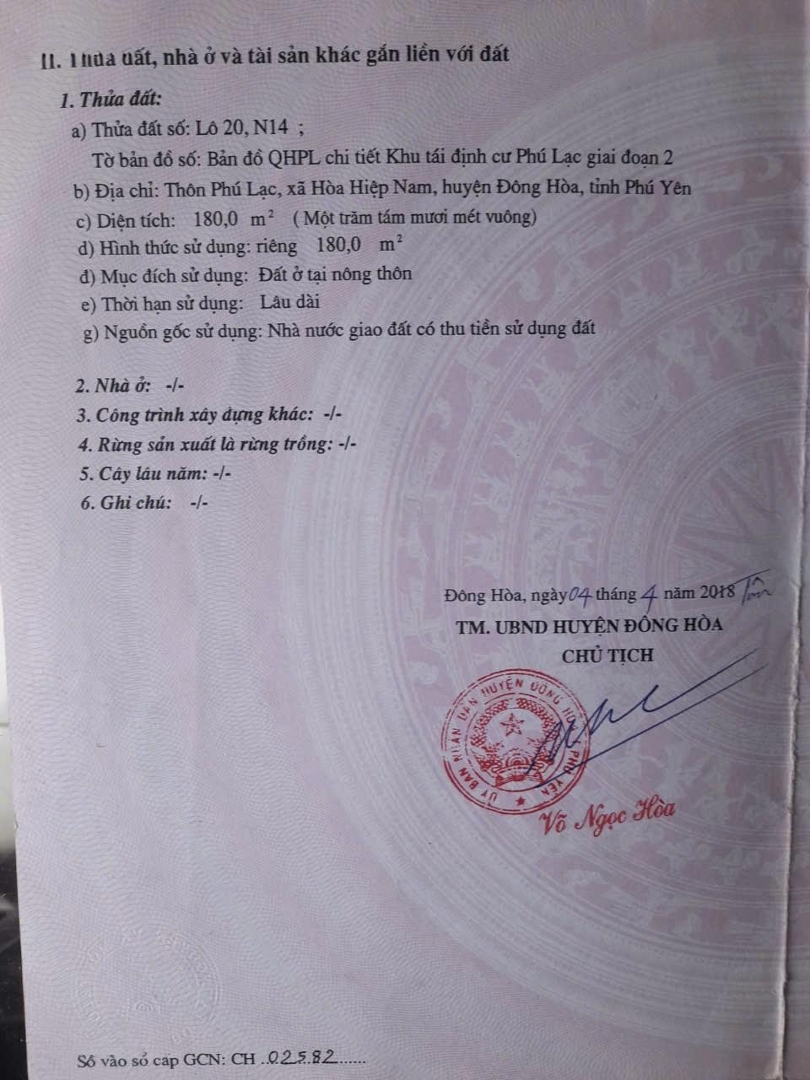 II. Thửa đất, nhà ở và tài sản khác gắn liền với đất
1. Thửa đất:
a) Thửa đất số: Lô 20, N14 ;
Tờ bản đồ số: Bản đồ QHPL chi tiết Khu tái định cư Phú Lạc giai đoạn 2
b) Địa chỉ: Thôn Phú Lạc, xã Hòa Hiệp Nam, huyện Đông Hòa, tỉnh Phú Yên
c) Diện tích: 180,0 m² ( Một trăm tám mươi mét vuông)
d) Hình thức sử dụng: riêng 180,0 m²
đ) Mục đích sử dụng: Đất ở tại nông thôn
e) Thời hạn sử dụng: Lâu dài
g) Nguồn gốc sử dụng: Nhà nước giao đất có thu tiền sử dụng đất
2. Nhà ở: -/-
3. Công trình xây dựng khác: -/-
4. Rừng sản xuất là rừng trồng: -/-
5. Cây lâu năm: -/-
6. Ghi chú: -/-
Đông Hòa, ngày 04 tháng 4 năm 2018
TM. UBND HUYỆN ĐÔNG HÒA
CHỦ TỊCH
ỦY BAN NHÂN DÂN HUYỆN ĐÔNG HÒA
PHÚ YÊN
Võ Ngọc Hòa
Số vào sổ cấp GCN: CH ..02582.......